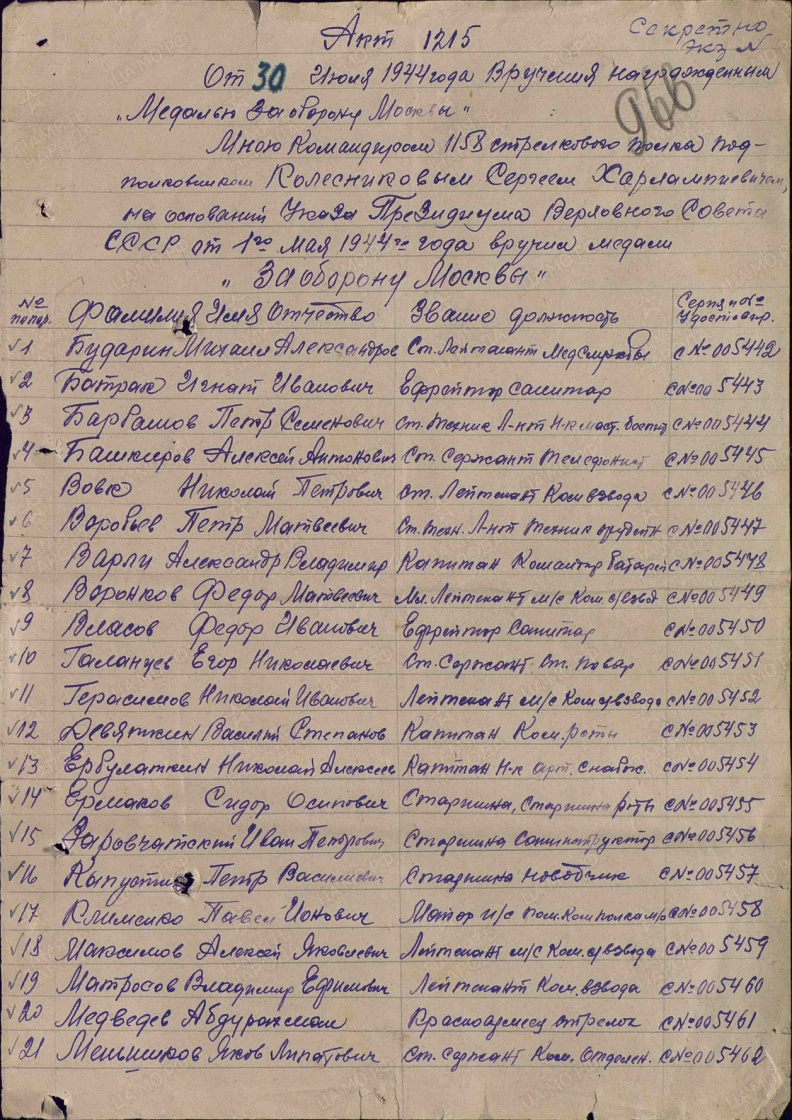 Секретно
Экз №
Акт 1215
966
От 30 Июля 1944 года Вручения награжденным
"Медалью За оборону Москвы"
Мною Командиром 1158 стрелкового полка под-
полковником Колесниковым Сергеем Харлампиевичем,
на основании Указа Президиума Верховного Совета
СССР от 1го Мая 1944 го года вручил медали
"За оборону Москвы"
№ по пор. Фамилия Имя Отчество Звание должность Серия и № Удостовер.
1 Бударин Михаил Александров Ст. Лейтенант Медслужбы с № 005442
2 Батрак Игнат Иванович Ефрейтор санитар с № 005443
3 Петр Семенович Ст. Техник Л-нт Н-к маст. с № 005444
4 Башкиров Алексей Антонович Ст. Сержант Телефонист с № 005445
5 Вовк Николай Петрович Ст. Лейтенант Ком взвода с № 005446
6 Воробьев Петр Матвеевич Ст. Техн. Л-нт Техник с № 005447
7 Варли Александр Владимир Капитан Командир батареи с № 005448
8 Воронков Федор Матвеевич Мл. Лейтенант м/с Ком. с/взвод с № 005449
9 Власов Федор Иванович Ефрейтор Санитар с № 005450
10 Галанцев Егор Николаевич Ст. Сержант Ст. повар с № 005451
11 Герасимов Николай Иванович Лейтенант м/с Ком с/взвода с № 005452
12 Девяткин Василий Степанов Капитан Ком. роты с № 005453
13 Ербулаткин Николай Алексеев Капитан Н-к арт. снабж. с № 005454
14 Ермаков Сидор Осипович Старшина, Старшина роты с № 005455
15 Заровчатский Иван Петрович Старшина Санинструктор с № 005456
16 Капустин Петр Василиевич Старшина с № 005457
17 Клименко Павел Ионович Майор и/с пом. Ком полка с № 005458
18 Максимов Алексей Яковлевич Лейтенант м/с Ком. с/взвода с № 005459
19 Матросов Владимир Ефимович Лейтенант Ком. взвода с № 005460
20 Медведев Абдурахман Красноармеец стрелок с № 005461
21 Меньшиков Яков Липатович Ст. Сержант Ком. Отделен. с № 005462